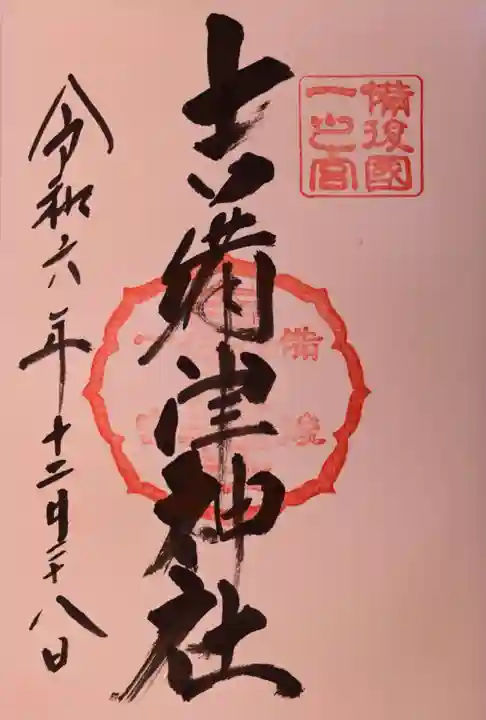 備後國
一之宮
吉備津神社
令和六年十二月二十八日